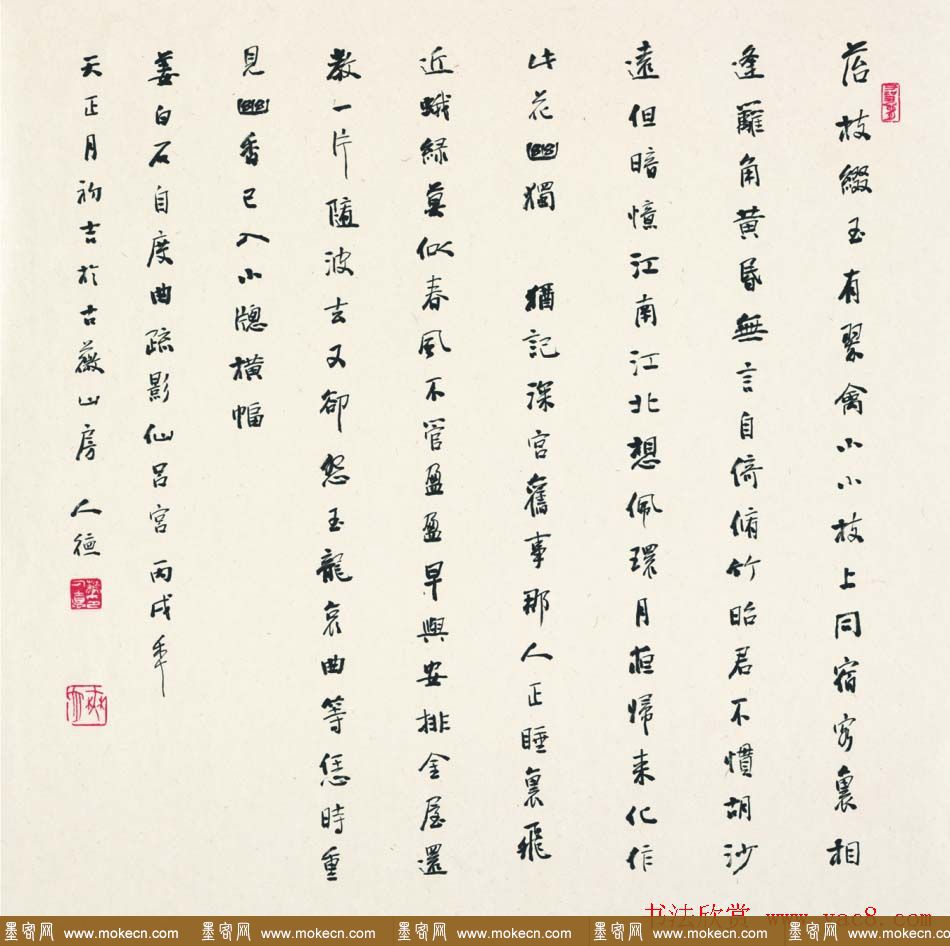 苔枝綴玉有翠禽小小枝上同宿客裏相
逢籬角黃昏無言自倚脩竹昭君不慣胡沙
遠但暗憶江南江北想佩環月夜歸來化作
此花幽獨 猶記深宮舊事那人正睡裏飛
近蛾綠莫似春風不管盈盈早與安排金屋還
教一片隨波去又卻怨玉龍哀曲等恁時重
見幽香已入小牕橫幅
姜白石自度曲疏影仙呂宮 丙戌年
天正月初吉於古薇山房 人德
书法欣赏 www.yac8.com
墨客网 www.mokecn.com 墨客网 www.mokecn.com 墨客网 www.mokecn.com 墨客网 www.mokecn.com 墨客网 www.mokecn.com